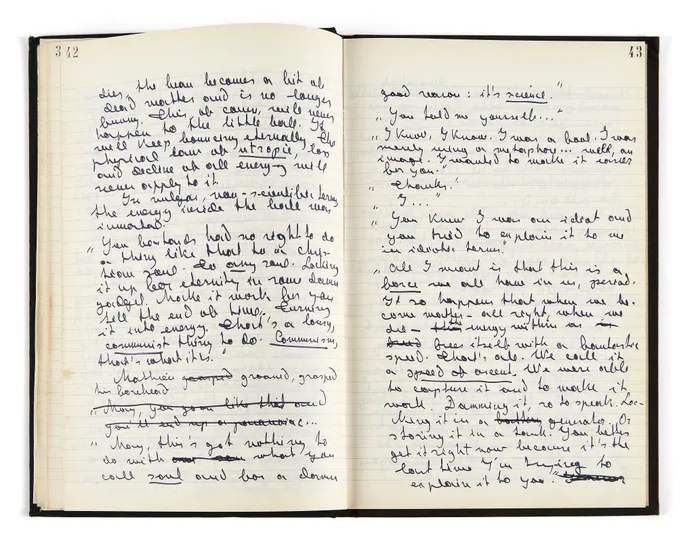 342
dies, the bean becomes a bit of
dead matter and is no longer
funny. This, of course, will never
happen to the little ball. It
will keep bouncing eternally. The
physical law of utropie, loss
and decline of all energy will
never apply to it.
In vulgar, non-scientific terms
the energy inside the ball was
immortal.
" You bastards had no right to do
a thing like that to a Chris-
tian soul. To any soul. Locking
it up for eternity in some damn
gadget. Make it work for you
till the end of time. Turning
it into energy. That's a lousy,
communist thing to do. Communism,
that's what it is."
Mathieu groaned, grasped
his forehead
" May, you goon like that and
you'll end up a paranoiac...
" May, this's got nothing to
do with what you
call soul and for a damn
43
good reason: it's science."
" You told me yourself..."
" I know, I know. I was a fool. I was
merely using a metaphor... well, an
image. I wanted to make it easier
for you."
" Thanks."
" I..."
" You knew I was an idiot and
you tried to explain it to me
in idiotic terms."
" All I meant is that this is a
force we all have in us, period.
It so happens that when we be-
come matter - all right, when we
die - this energy within us
frees itself with a fantastic
speed. That's all. We call it
a speed of ascent. We were able
to capture it and to make it
work. Damming it, so to speak. Loc-
king it in a generator. Or
storing it in a tank. You better
get it right now because it's the
last time I'm trying to
explain it to you."